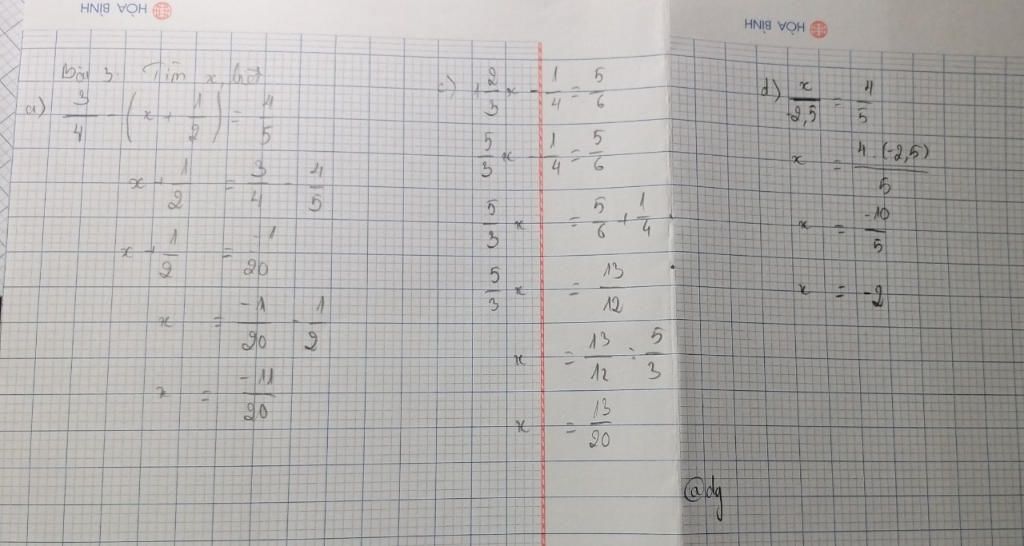 HÒA BÌNH
HÒA BÌNH
Bài 3. Tìm x, biết
a) 3/4 - (x + 1/2) = 4/5
x + 1/2 = 3/4 - 4/5
x + 1/2 = -1/20
x = -1/20 - 1/2
x = -11/20
c) + 2/3 x - 1/4 = 5/6
5/3 x - 1/4 = 5/6
5/3 x = 5/6 + 1/4
5/3 x = 13/12
x = 13/12 : 5/3
x = 13/20
d) x/-2,5 = 4/5
x = 4.(-2,5)/5
x = -10/5
x = -2
@dg